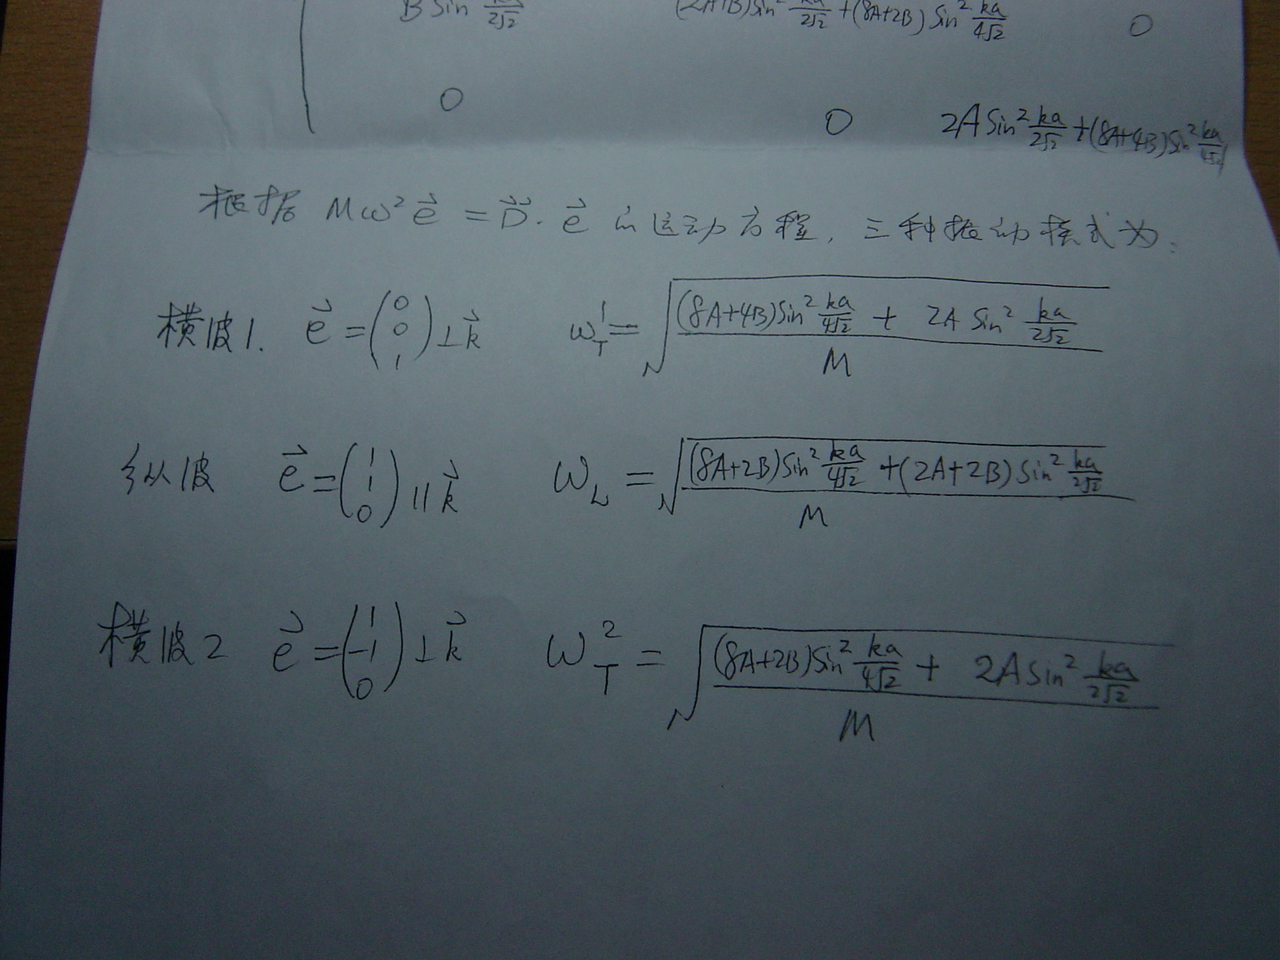 B Sin ka/2√2 (2A+B)Sin² ka/2√2 +(8A+2B) Sin² ka/4√2 0
0 0 2A Sin² ka/2√2 +(8A+4B)Sin² ka/4√2
根据 Mω² e⃗ = D⃗⃗ · e⃗ 的运动方程, 三种振动模式为:
横波1. e⃗ = (0 0 1) ⊥ k⃗ ω_T^1 = √((8A+4B)Sin² ka/4√2 + 2A Sin² ka/2√2 / M)
纵波 e⃗ = (1 1 0) // k⃗ ω_L = √((8A+2B)Sin² ka/4√2 +(2A+2B) Sin² ka/2√2 / M)
横波2 e⃗ = (1 -1 0) ⊥ k⃗ ω_T^2 = √((8A+2B)Sin² ka/4√2 + 2A Sin² ka/2√2 / M)